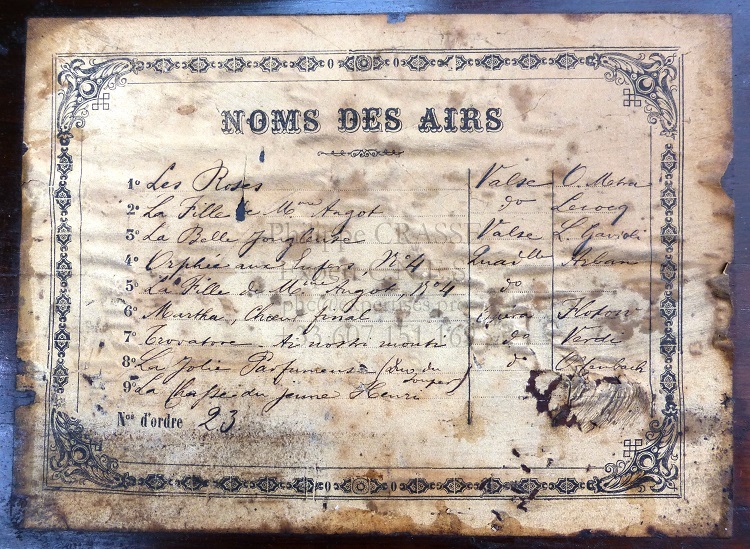 NOMS DES AIRS
1º Les Roses Valse O. Métra
2º La Fille de Mme Angot do Lecocq
3º La Belle Jongleuse Valse L. Gavioli
4º Orphée aux Enfers Nº4 Quadlle Arban
5º La Fille de Mme Angot, Nº4 do
6º Martha, Chœur final Opéra Flotow
7º Trovatore Ai nostri monti do Verdi
8º La Jolie Parfumeuse (Duo du souper) do Offenbach
9º La Chasse du jeune Henri
Nos d'ordre 23